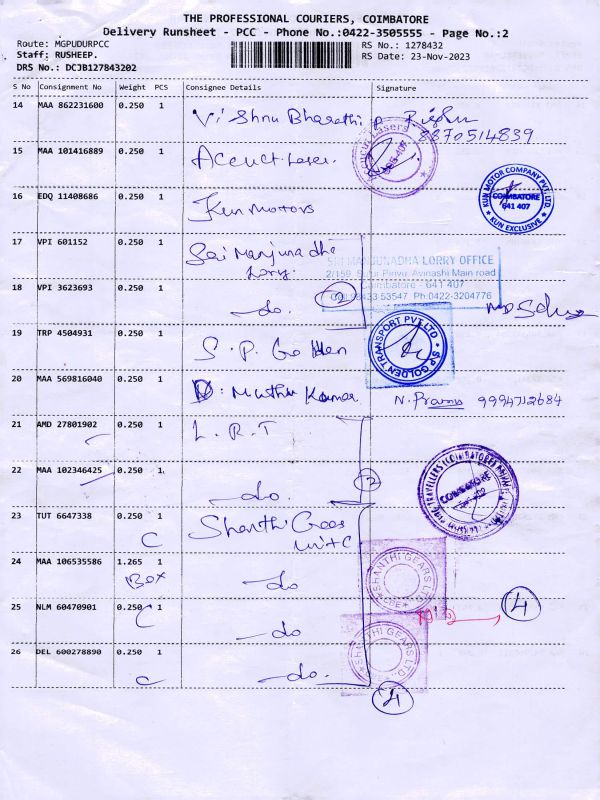 THE PROFESSIONAL COURIERS, COIMBATORE
Delivery Runsheet - PCC - Phone No.:0422-3505555 - Page No.:2
Route: MGPUDURPCC
RS No.: 1278432
Staff: RUSHEEP.
RS Date: 23-Nov-2023
DRS No.: DCJB127843202
S No Consignment No Weight PCS Consignee Details Signature
14 MAA 862231600 0.250 1 Vishnu Bharathi
8870514839
15 MAA 101416889 0.250 1 Accuct Laser.
16 EDQ 11408686 0.250 1 Kun Motors
KUN MOTOR COMPANY PVT. LTD
COIMBATORE
641 407
KUN EXCLUSIVE
17 VPI 601152 0.250 1 Sai Manjunadha
Lorry.
SRI MANJUNADHA LORRY OFFICE
2/159, Pirivu, Avinashi Main road
Coimbatore - 641 407
53547 Ph:0422-3204776
18 VPI 3623693 0.250 1 do. 2
19 TRP 4504931 0.250 1 S.P. Golden
S.P. GOLDEN TRANSPORT PVT LTD
20 MAA 569816040 0.250 1 D. Muthu Kumar. N. 9994712684
21 AMD 27801902 0.250 1 L.R.T
22 MAA 102346425 0.250 1 do. 2
COIMBATORE
23 TUT 6647338 0.250 1 Shanthi Gears
Unit C
C
24 MAA 106535586 1.265 1 do
Box
SHANTHI GEARS LTD.
CBE
25 NLM 60470901 0.250 1 do
C
4
26 DEL 600278890 0.250 1 do.
C
SHANTHI GEARS LTD.
4